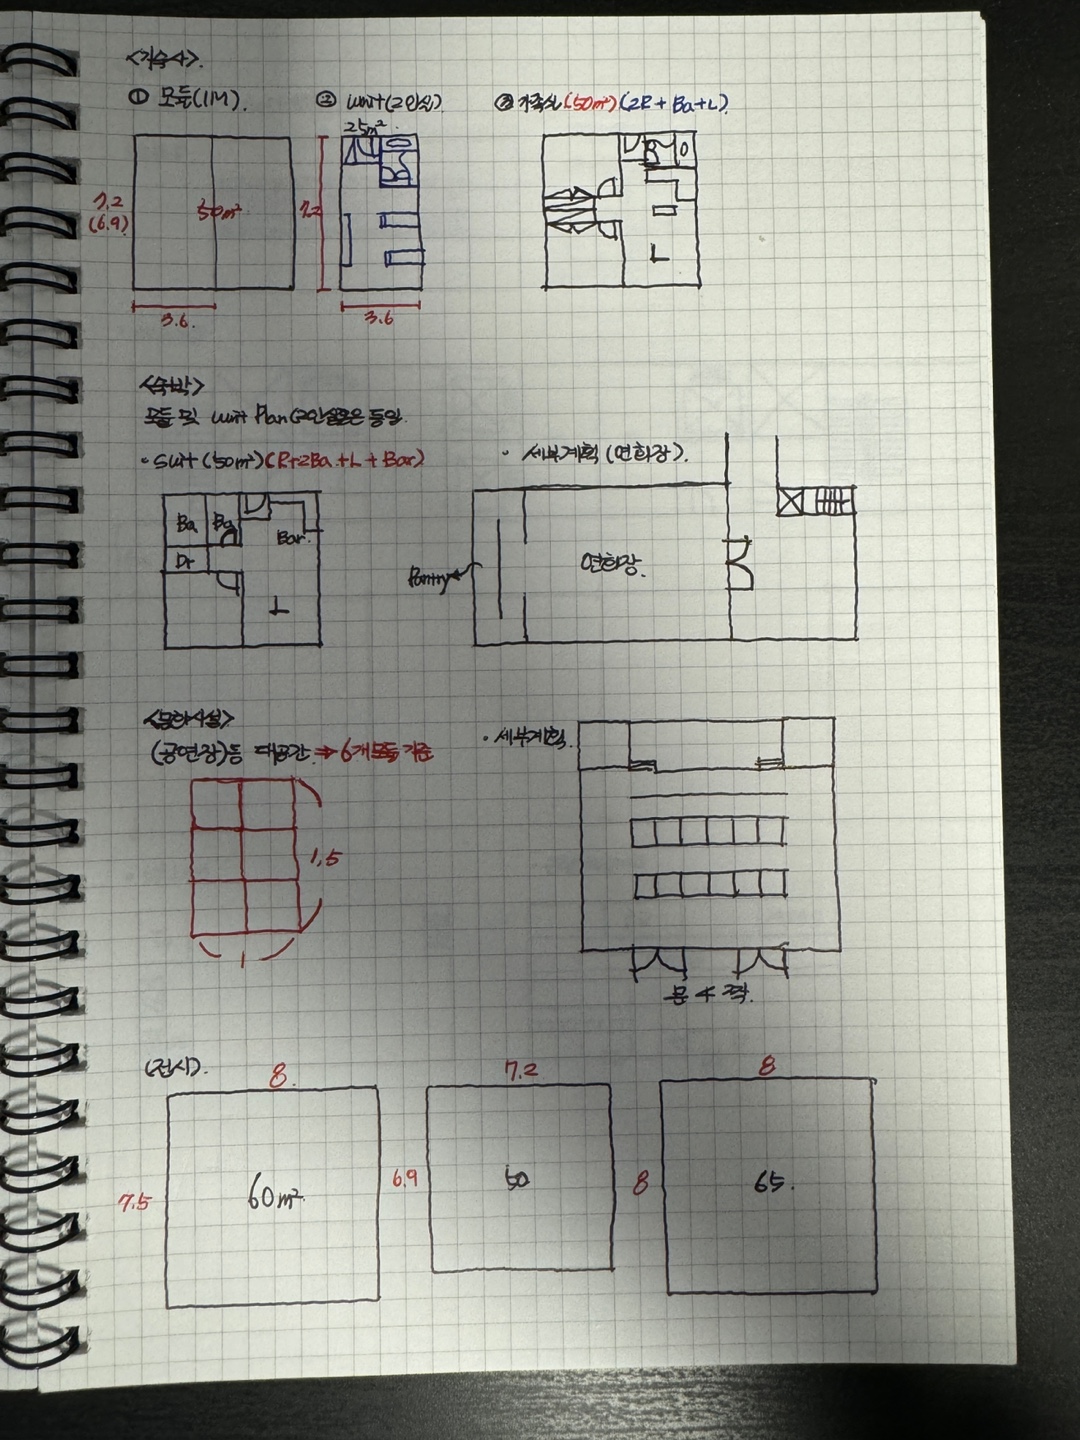 <기숙사>.
① 모듈(1M).
② unit(2인실)
25m².
③ 가족실(50m²)(2R+Ba+L).
7.2
(6.9)
50m²
7.2
L
3.6.
3.6
<숙박>
모듈 및 unit Plan(2인실)은 동일.
· Suit(50m²)(R+2Ba+L+Bar)
· 세부계획(연회장).
Ba
Ba
Bar.
Dr
L
Pantry
연회장.
<문화시설>
(공연장)등 대공간. ⇒ 6개모듈 기준
· 세부계획.
1.5
1
문 4짝.
(전시).
8.
7.2
8
7.5
60m².
6.9
50
8
65.